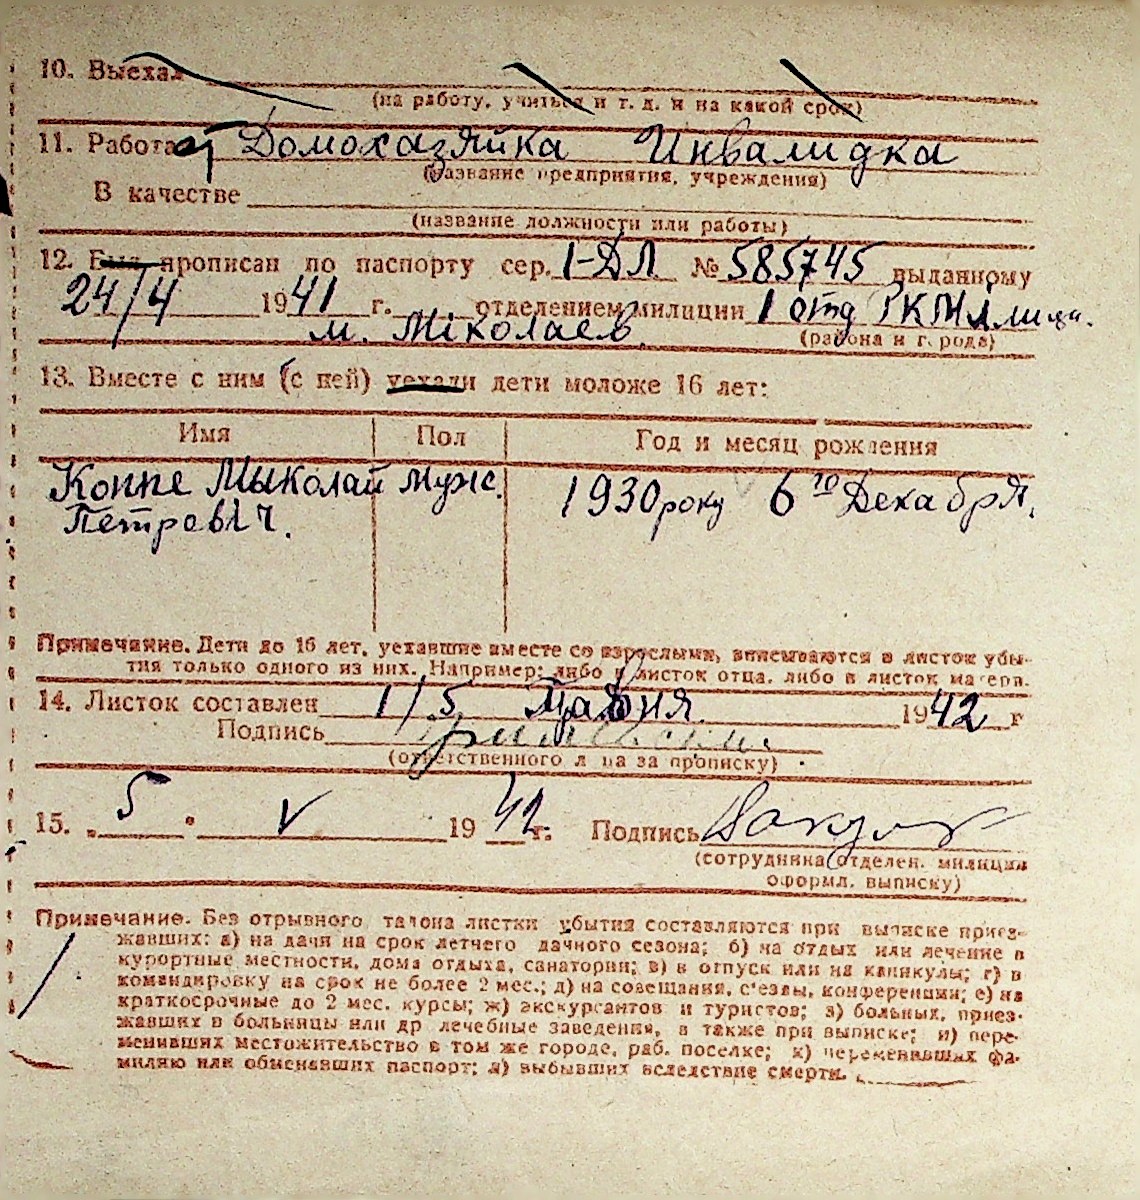 10. Выехал
(на работу, учиться и т. д. и на какой срок)
11. Работает Домохазяйка Инвалидка
(название предприятия, учреждения)
В качестве
(название должности или работы)
12. Был прописан по паспорту сер. I-ДЛ № 585745 выданному
24/4 1941 г. отделением милиции 1 отд РКМ
м. Міколаев. (района и города)
13. Вместе с ним (с ней) уехали дети моложе 16 лет:
Имя Пол Год и месяц рождения
Коппе Мыколай Мужс. 1930 року 6го Декабря.
Петровіч.
Примечание. Дети до 16 лет, уехавшие вместе со взрослыми, вписываются в листок убы-
тия только одного из них. Например: либо в листок отца, либо в листок матери.
14. Листок составлен 1/5 1942 г
Подпись
(ответственного лица за прописку)
15. „5" V 1942 г. Подпись
(сотрудника отделен. милиции
оформл. выписку)
Примечание. Без отрывного талона листки убытия составляются при выписке приез-
жавших: а) на дачи на срок летнего дачного сезона; б) на отдых или лечение в
курортные местности, дома отдыха, санатории; в) в отпуск или на каникулы; г) в
командировку на срок не более 2 мес.; д) на совещания, с'езды, конференции; е) на
краткосрочные до 2 мес. курсы; ж) экскурсантов и туристов; з) больных, приез-
жавших в больницы или др лечебные заведения, а также при выписке; и) пере-
менивших местожительство в том же городе, раб. поселке; к) переменивших фа-
милию или обменявших паспорт; л) выбывших вследствие смерти.